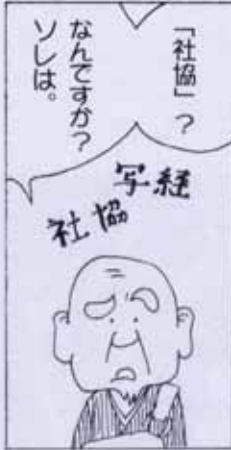 「社協」？
なんですか？
ソレは。
写経
社協